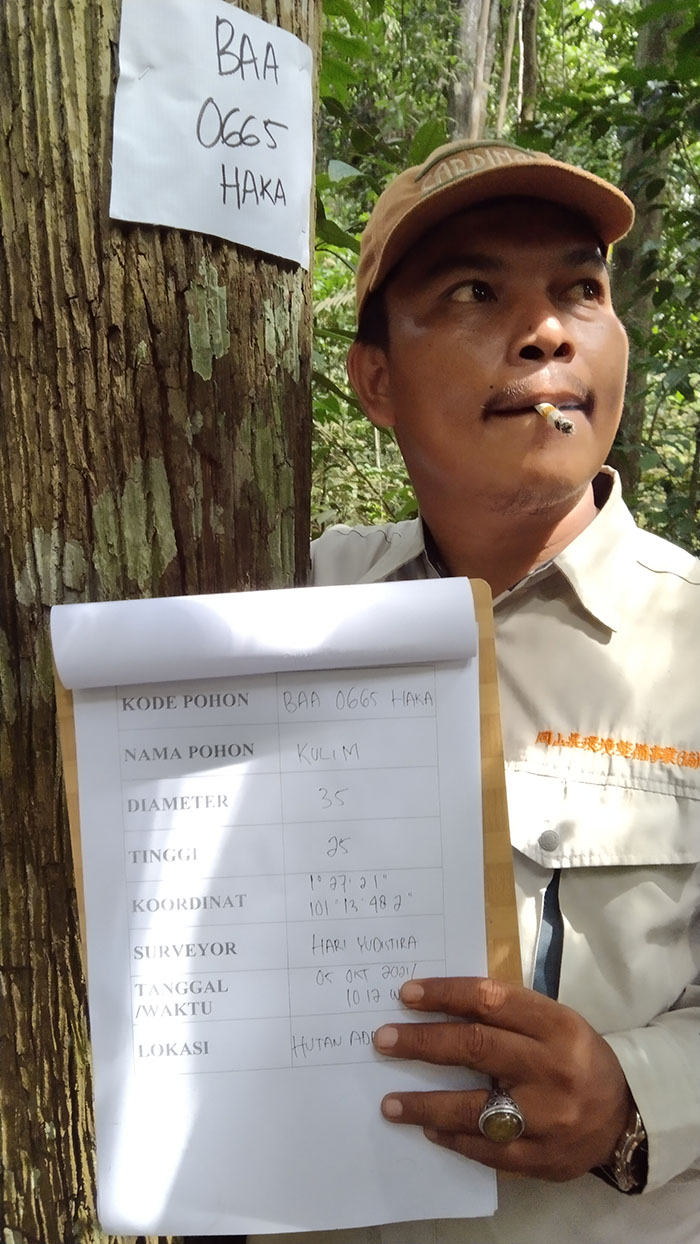 BAA
0665
HAKA
CARDINAL
KODE POHON BAA 0665 HAKA
NAMA POHON KULIM
DIAMETER 35
TINGGI 25
KOORDINAT 1° 27' 21"
101° 13' 48 2"
SURVEYOR HARI YUDISTIRA
TANGGAL 05 OKT 2021/
/WAKTU 10 12 W
LOKASI HUTAN AD
岡山県環境整備事業(協)